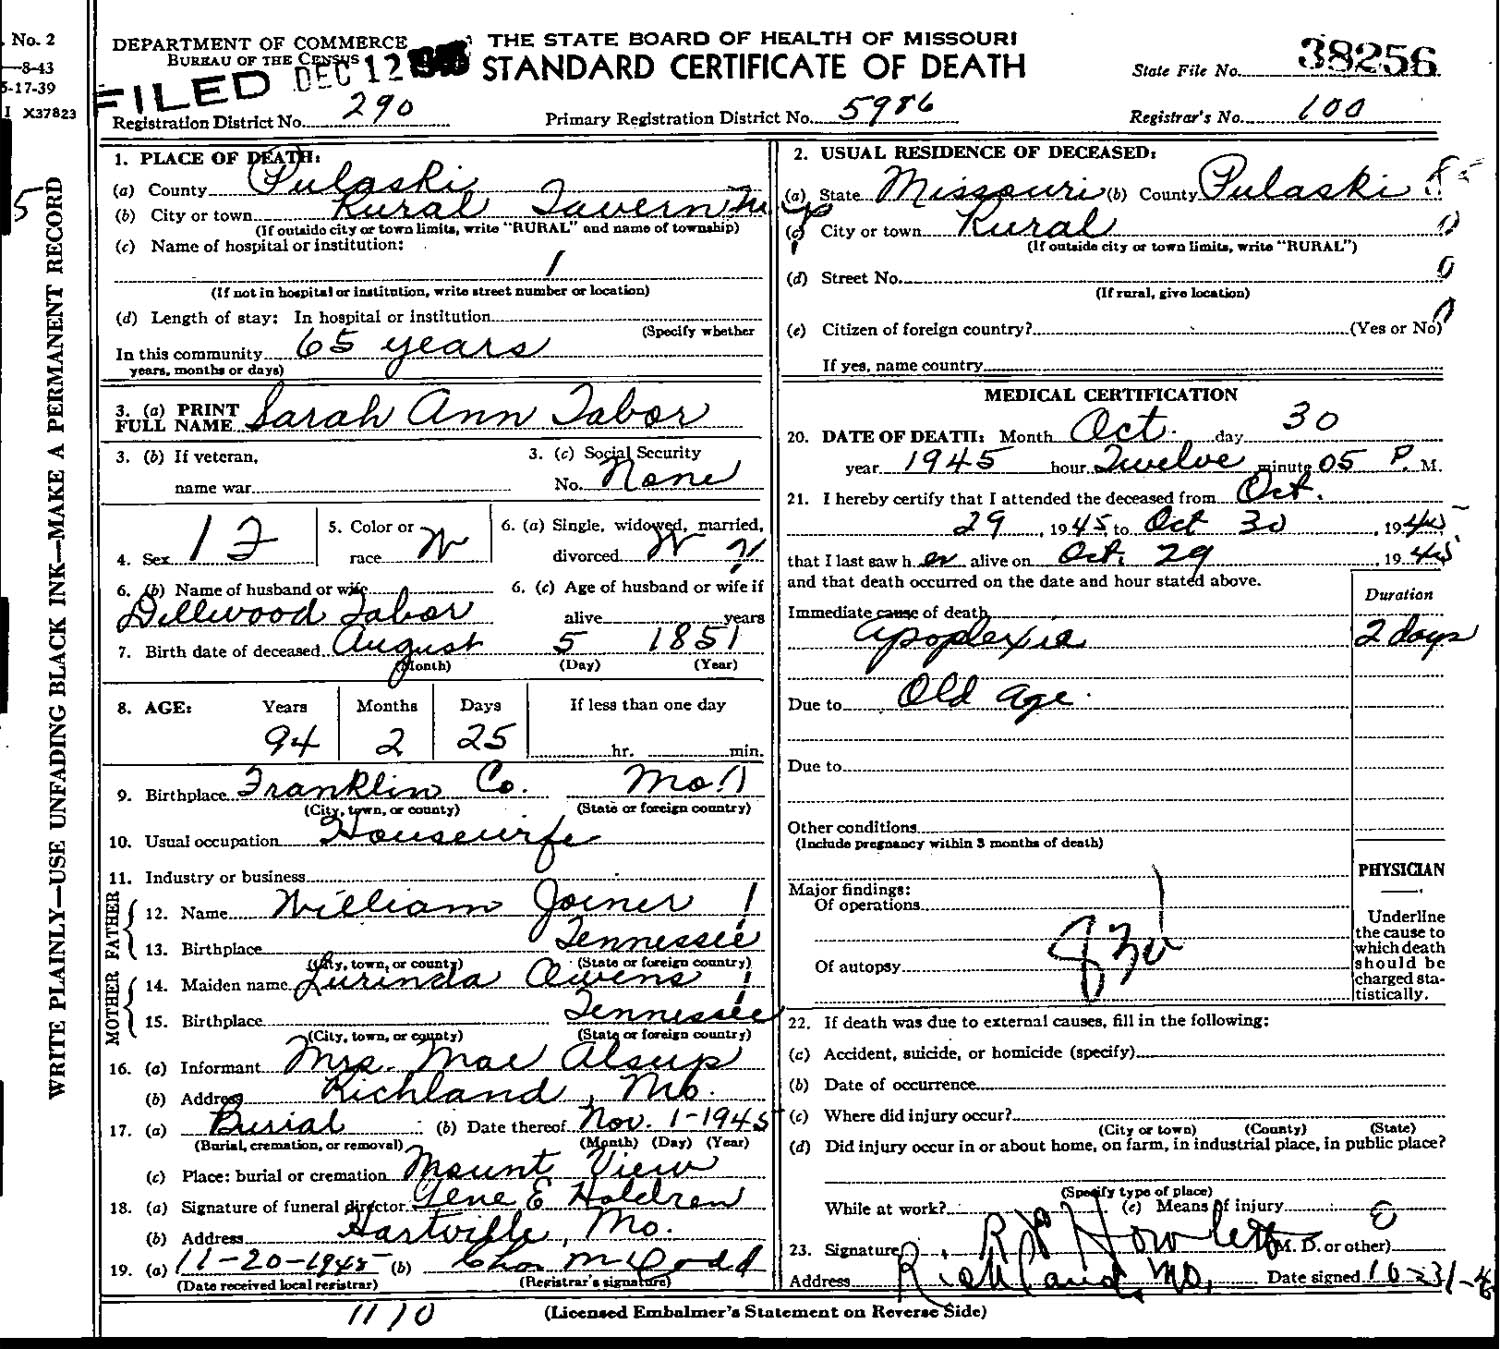 . No. 2
—8-43
5-17-39
I X37823
5
WRITE PLAINLY—USE UNFADING BLACK INK—MAKE A PERMANENT RECORD
DEPARTMENT OF COMMERCE
BUREAU OF THE CENSUS
FILED DEC 12
THE STATE BOARD OF HEALTH OF MISSOURI
STANDARD CERTIFICATE OF DEATH
State File No. 38256
Registration District No. 290
Primary Registration District No. 5986
Registrar's No. 100
1. PLACE OF DEATH:
(a) County Pulaski
(b) City or town Rural Tavern Twp
(If outside city or town limits, write "RURAL" and name of township)
(c) Name of hospital or institution:
1
(If not in hospital or institution, write street number or location)
(d) Length of stay: In hospital or institution
(Specify whether
In this community 65 years
years, months or days)
3. (a) PRINT FULL NAME Sarah Ann Tabor
3. (b) If veteran, name war
3. (c) Social Security No. None
4. Sex 1 F
5. Color or race W
6. (a) Single, widowed, married, divorced W
6. (b) Name of husband or wife
Dillwood Tabor
6. (c) Age of husband or wife if alive years
7. Birth date of deceased August 5 1851
(Month) (Day) (Year)
8. AGE: Years Months Days If less than one day
94 2 25 hr. min.
9. Birthplace Franklin Co. Mo.
(City, town, or county) (State or foreign country)
10. Usual occupation Housewife
11. Industry or business
FATHER
12. Name William Joiner 1
13. Birthplace Tennessee
(City, town, or county) (State or foreign country)
MOTHER
14. Maiden name Lurinda Owens 1
15. Birthplace Tennessee
(City, town, or county) (State or foreign country)
16. (a) Informant Mrs. Mae Alsup
(b) Address Richland, Mo.
17. (a) Burial (b) Date thereof Nov. 1-1945
(Burial, cremation, or removal) (Month) (Day) (Year)
(c) Place: burial or cremation Mount View
18. (a) Signature of funeral director Gene E Holdren
(b) Address Hartville, Mo.
19. (a) 11-20-1945 (b) Chas
(Date received local registrar) (Registrar's signature)
2. USUAL RESIDENCE OF DECEASED:
(a) State Missouri (b) County Pulaski 85
(c) City or town Rural 0
(If outside city or town limits, write "RURAL")
(d) Street No. 0
(If rural, give location)
(e) Citizen of foreign country? (Yes or No) 0
If yes, name country
MEDICAL CERTIFICATION
20. DATE OF DEATH: Month Oct. day 30
year 1945 hour Twelve minute 05 P. M.
21. I hereby certify that I attended the deceased from Oct.
29, 1945 to Oct 30, 1945
that I last saw her alive on Oct. 29, 1945
and that death occurred on the date and hour stated above.
Duration
Immediate cause of death
Apoplexie 2 days
Due to Old age.
Due to
Other conditions
(Include pregnancy within 3 months of death)
Major findings:
Of operations
Of autopsy
PHYSICIAN
Underline the cause to which death should be charged statistically.
22. If death was due to external causes, fill in the following:
(a) Accident, suicide, or homicide (specify)
(b) Date of occurrence
(c) Where did injury occur?
(City or town) (County) (State)
(d) Did injury occur in or about home, on farm, in industrial place, in public place?
(Specify type of place)
While at work? (e) Means of injury
23. Signature Howlett (M. D. or other)
Address Richland, Mo. Date signed 10-31-45
1110
(Licensed Embalmer's Statement on Reverse Side)